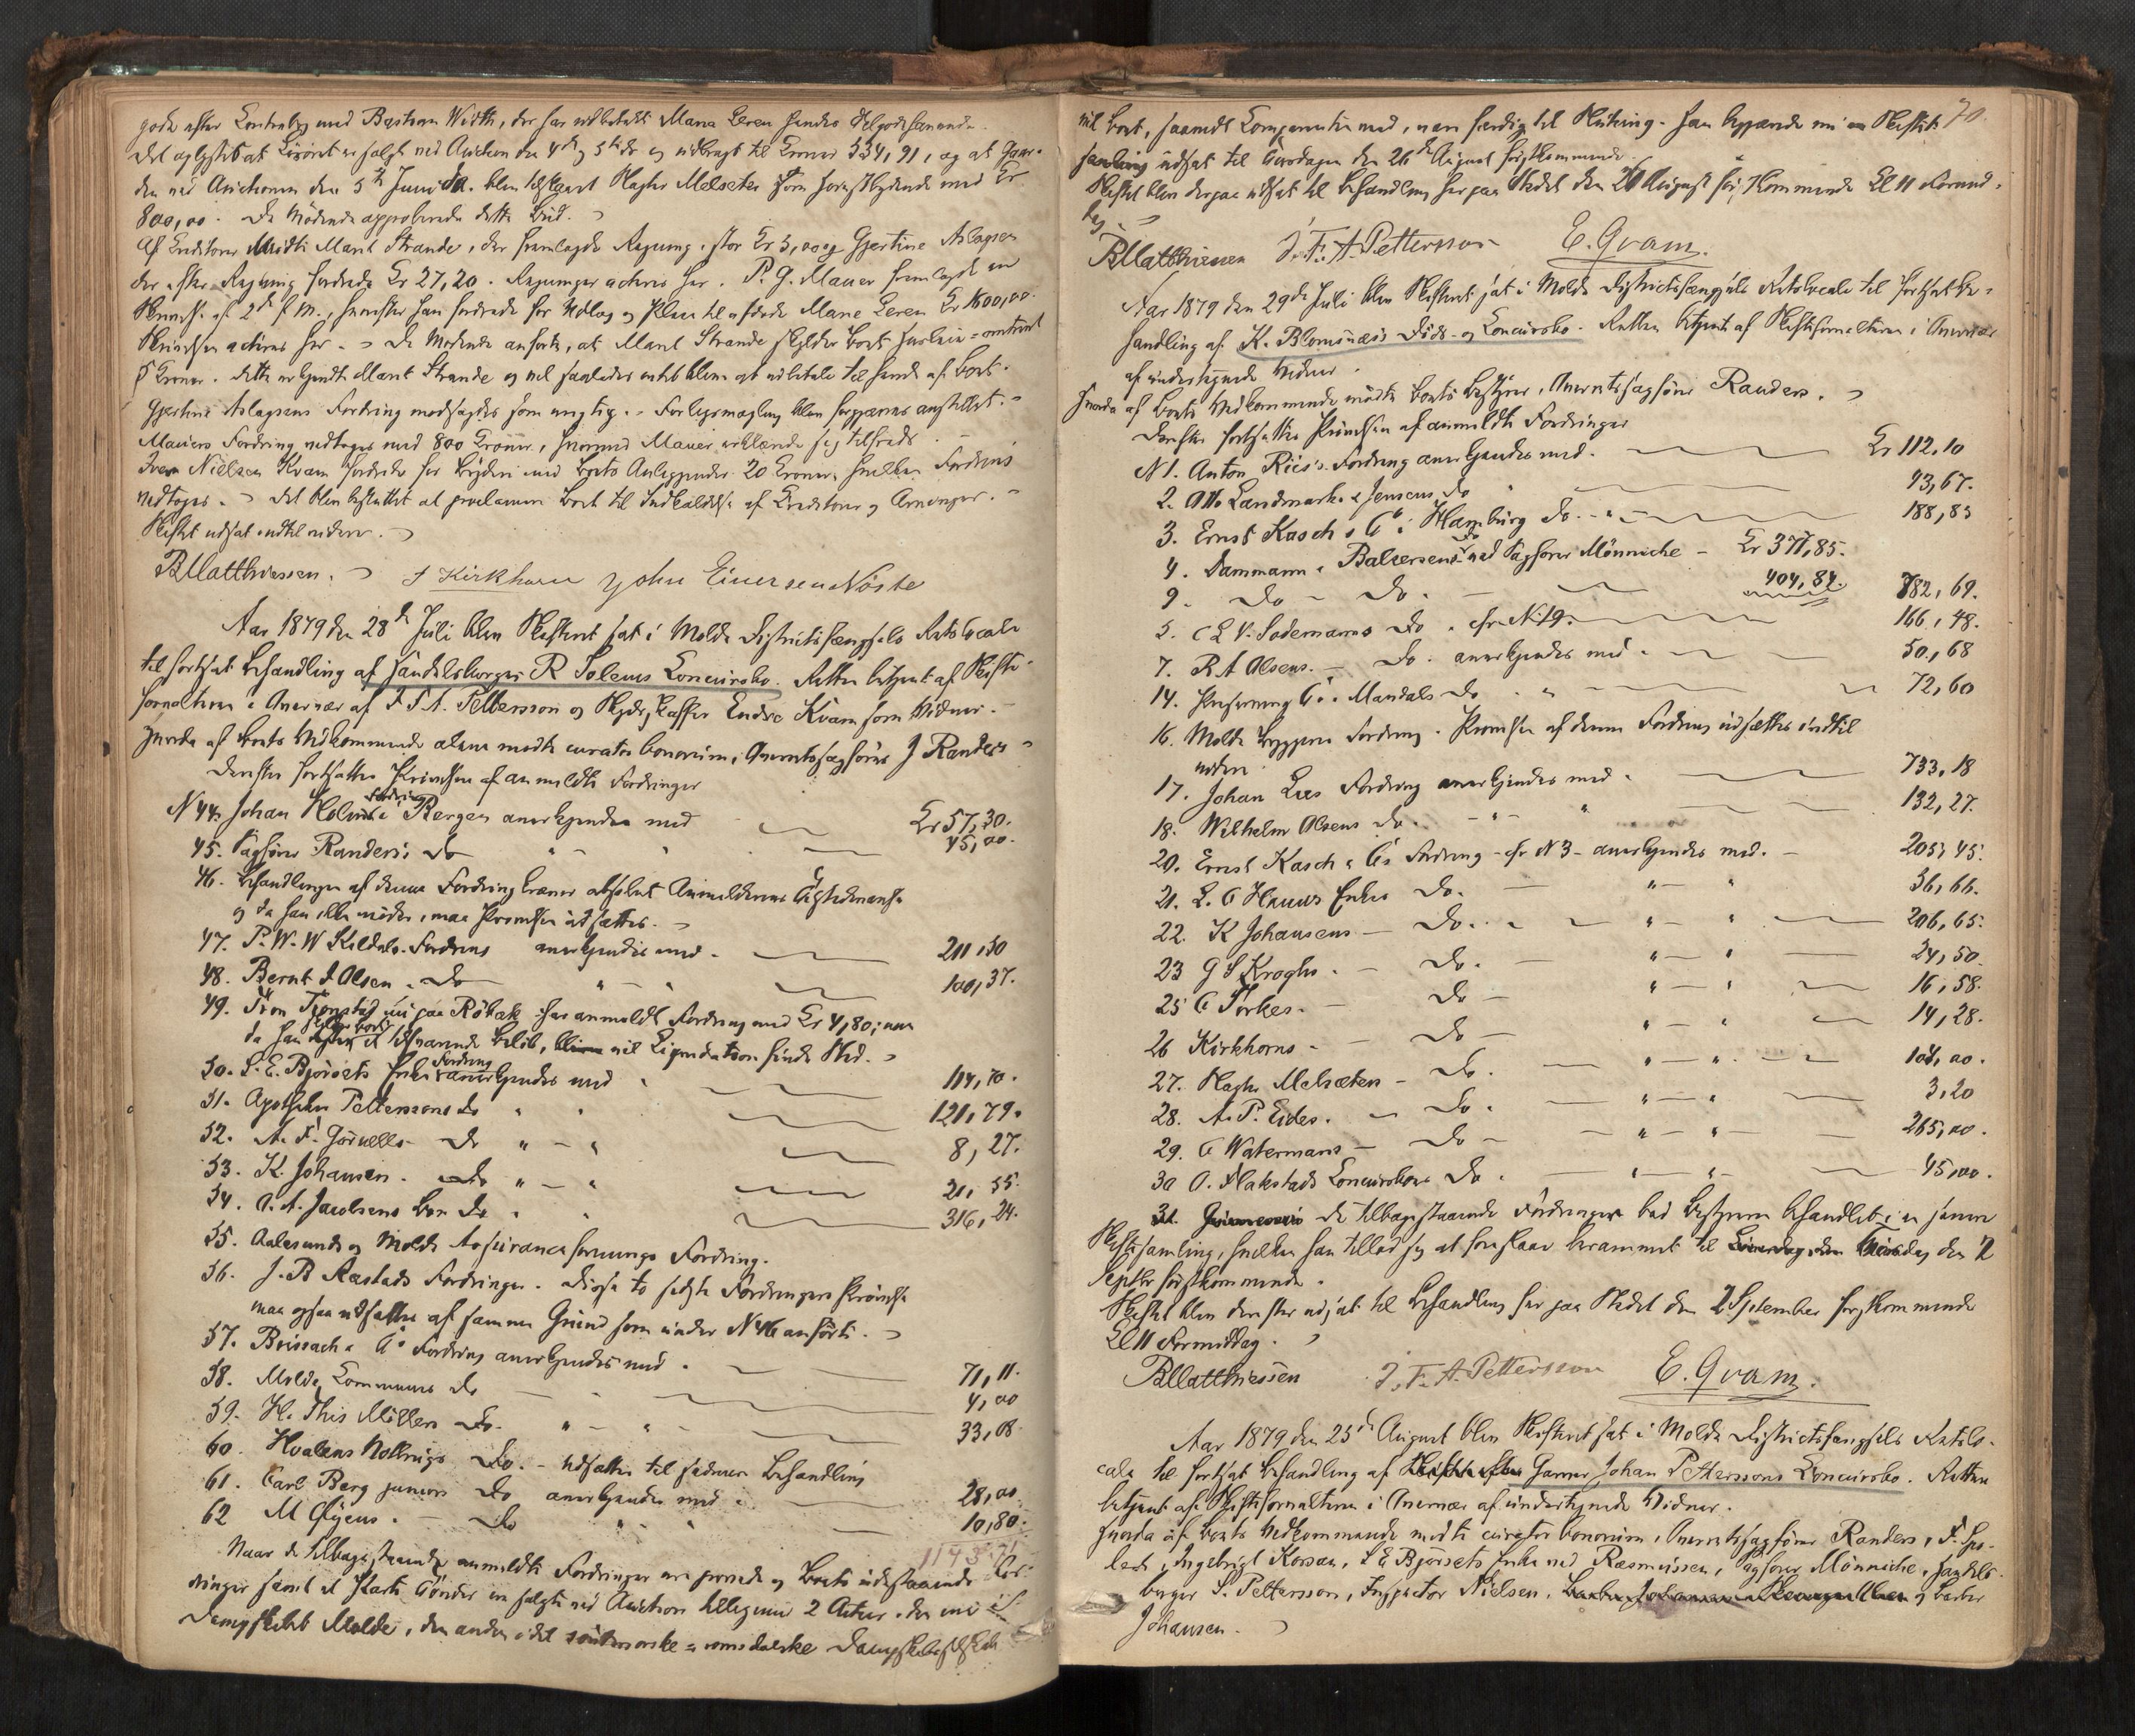 gode efter Contrabog med Bastian Wirth, der har udbetalt Mane Leren hendes Tilgodehavende.
Det oplystes at Lösöret er solgt ved Auction den 4de og 5te dr og udbragt til Kroner 334,91, og at Gaar-
den ved Auctionen den 5te Juni d.A. blev tilslaaet Mads Melseter som höistbydende med Kr
800,00. De Mödende approberede dette Bud.
Af Creditorer mödte Marit Strande, der fremlagde Regning, stor Kr 5,00 og Gjertine Aslagsen
der efter Regning fordrede Kr 27,20. Regninger acteres her. P. G. Mauer fremlagde en
af 2de f. M., hvorefter han fordrede for Udlæg og Pleie til afdöde Mane Leren Kr 1800,00.
acteres her. De Mödende anförte, at Marit Strande skylder Boet Huusleie omtrent
8 Kroner. Dette erkjendte Marit Strande og vil saaledes intet blive at udbetale til hende af Boet.
Gjertine Aslagsens Fordring modsagdes som urigtig. Forligsmægling blev forgjæves anstillet.
Mauers Fordring vedtoges med 800 Kroner, hvormed Mauer erklærede sig tilfreds.
Iver Nielsen Kvam fordrede for Bryderi med Boets Anliggender 20 Kroner, hvilken Fordring
vedtoges. Det blev besluttet at proclamere Boet til Indkaldelse af Creditorer og Arvinger.
Skiftet udsat indtil videre.
BMatthiessen. J Kirkhorn John Einersen Nöste
Aar 1879 den 28de Juli blev Skifteret sat i Molde Districtsfængsels Retslocale
til fortsat Behandling af Handelsborger R Solems Concursbo. Retten betjent af Skifte-
forvalteren i Overvær af J F A. Pettersson og Endre Kvam som Vidner.
Hvorda af Boets Vedkommende alene mödte curator bonorum, Overretssagförer J Randers
Derefter fortsattes Prövelsen af anmeldte Fordringer
N 44. Johan Holms Fordring i Bergen anerkjendes med Kr 57,30.
45. Sagförer Randers's do " - " 45,00.
46. Behandlingen af denne Fordring kræver absolut Anmelderens Tilstedeværelse
og da han ikke möder, maa Prövelsen udsættes.
47. P. W. W Kildals Fordring anerkjendes med 211,30
48. Bernt J Olsen Do " - " 100,37.
49. Iver Tjenstad nu paa Röbæk har anmeldt Fordring med Kr 4,80; men
da han skylder Boet et tilsvarende Belöb, vil Liquidation finde Sted.
50. L. E. Bjørsets Enkes Fordring anerkjendes med 114,70.
51. Apotheker Petterssons do " " 121,79.
52. A. F. Jörvells Do " - " 8,27.
53. K. Johansen. Do " - " 21,55.
54. A. A. Jacobsens Bos Do " " 316,24.
55. Aalesunds og Molde Assuranceforenings Fordring.
56. J. B. Aastads Fordringer. Disse to sidste Fordringers Prövelse
maa ogsaa udsættes af samme Grund som under N 46 anfört.
57. Beissach & Co Fordring anerkjendes med 71,11.
58. Molde Communes do 4,00
59. H. This Möllers Do. " - " 33,08
60. Hvalens Do. - udsættes til senere Behandling
61. Carl Berg juniors Do anerkjendes med 28,00
62 M Öyens. Do " " 10,80.
1193.71
Naar de tilbagestaaende anmeldte Fordringer ere prövede og Boets udestaaende For-
dringer samt et Parti Tönder er solgte ved Auction tilligemed 2 Actier, den ene i
Dampskibet Molde, den anden i det söndmörske & romsdalske Dampskibsselskab

70.
vil Boet, saavidt Comparenten ved, være færdig til Slutning. Han begjærede nu en Skifte-
samling udsat til Torsdagen den 26de August förstkommende.
Skiftet blev derpaa udsat til Behandling her paa Stedet den 26 August förstkommende Kl 11 Formid-
dag.
BMatthiessen J. F. A. Pettersson E. Qvam.
Aar 1879 den 29de Juli blev Skifteret sat i Molde Districtsfængsels Retslocale til fortsat Be-
handling af K. Blomsnæs's Döds- og Concursbo. Retten betjent af Skifteforvalteren i Overvær
af undertegnede Vidner.
Hvorda af Boets Vedkommende mödte Boets Bestyrer, Overretssagförer Randers.
Derefter fortsattes Prövelsen af anmeldte Fordringer
N 1. Anton Ries's Fordring anerkjendes med. Kr 112,10
2. Otto Landmark & Jensens Do 93,67.
3. Ernst Kasch & Co i Hamburg Do. 188,83
4. Dammann & Balzersens Do ved Sagförer Mönniche - Kr 377,85.
9. Do - Do. 404,84. 782,69.
5. C L V. Sodemanns Do. cfr N 19. 166,48.
7. R A Olsens. - Do. anerkjendes med 50,68
14. Preserving Co i Mandals Do. " 72,60
16. Molde Bryggeris Fordring. Prövelsen af denne Fordring udsættes indtil
videre.
17. Johan Lies Fordring anerkjendes med. 733,18
18. Wilhelm Olsens Do. - " - " 132,27.
20. Ernst Kasch & Co's Fordring - cfr N 3 - anerkjendes med. 205,45.
21. L. O Hauws Enkes Do. " - " 36,66.
22. K Johansens - Do. " - " 206,65.
23 G S Kroghs. - Do. " - " 24,50.
25 C Torkes. - Do - " - " 16,58.
26 Kirkhorns - Do - " - " 14,28.
27. Mads Melseters - Do. " - " 104,00.
28. A. P. Eides. - Do. " - " 3,20
29. C Watermans - Do - " - " 265,00.
30 O. Flakstads Concursbos Do. " - " 45,00.
31. De tilbagestaaende Fordringer bad Bestyreren behandlet i en senere
Skiftesamling, hvilken han tillod sig at foreslaae berammet til Tirsdag den 2
Septbr förstkommende.
Skiftet blev derefter udsat til Behandling her paa Stedet den 2 September förstkommende
Kl 11 Formiddag.
BMatthiessen J. F. A. Pettersson E. Qvam.
Aar 1879 den 25de August blev Skifteret sat i Molde Districtsfængsels Retslo-
cale til fortsat Behandling af Garver Johan Petterssons Concursbo. Retten
betjent af Skifteforvalteren i Overvær af undertegnede Vidner.
Hvorda af Boets Vedkommende mödte curator bonorum, Overretssagförer Randers, F.
Ingebrigt Korsan, L E Bjørsets Enke ved Rasmussen, Sagförer Mönniche, Handels-
borger S. Pettersson, Inspector Nielsen, og Barber
Johansen.